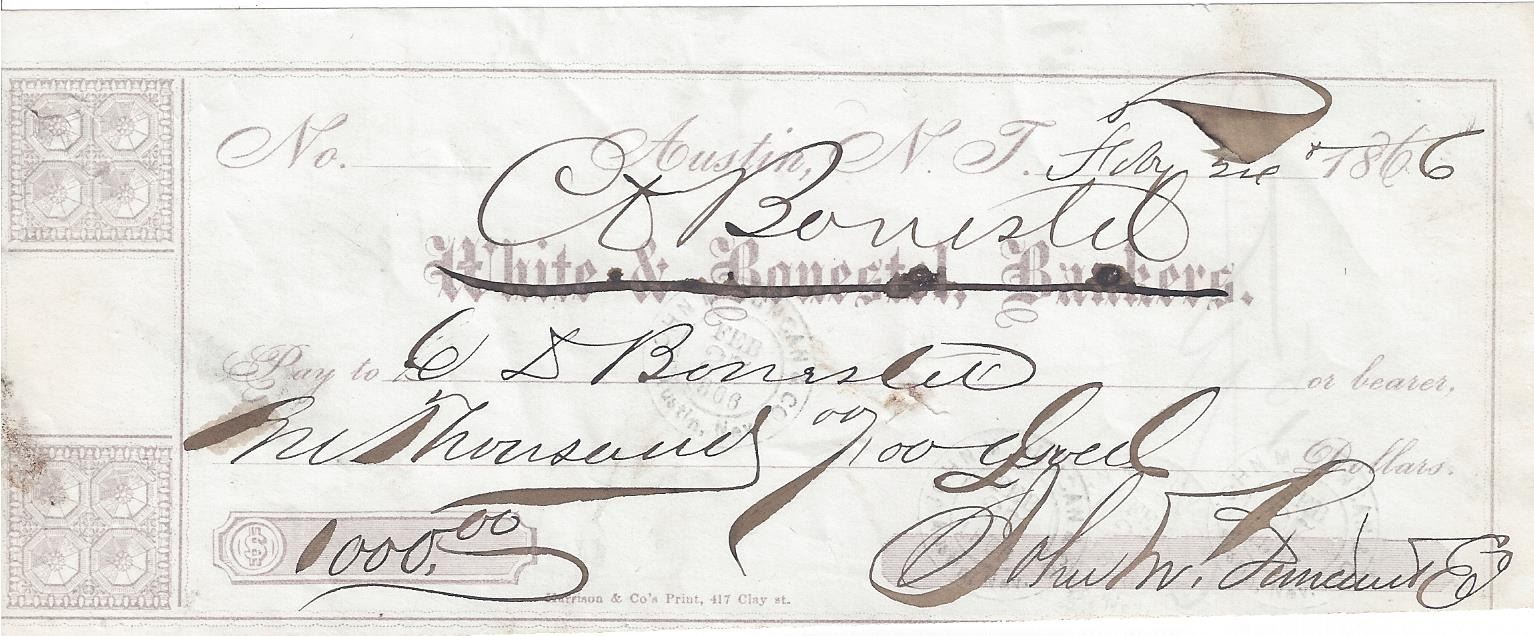 No. Austin, N. T. Feby 24 1866
C D Bonestel
White & Bonestel, Bankers.
Pay to C D Bonestel or bearer,
One Thousand 00/100 Gold Dollars.
$ 1000.00 John W. Duncan & Co
Harrison & Co's Print, 417 Clay st.
FEB 1866
Austin, Nev